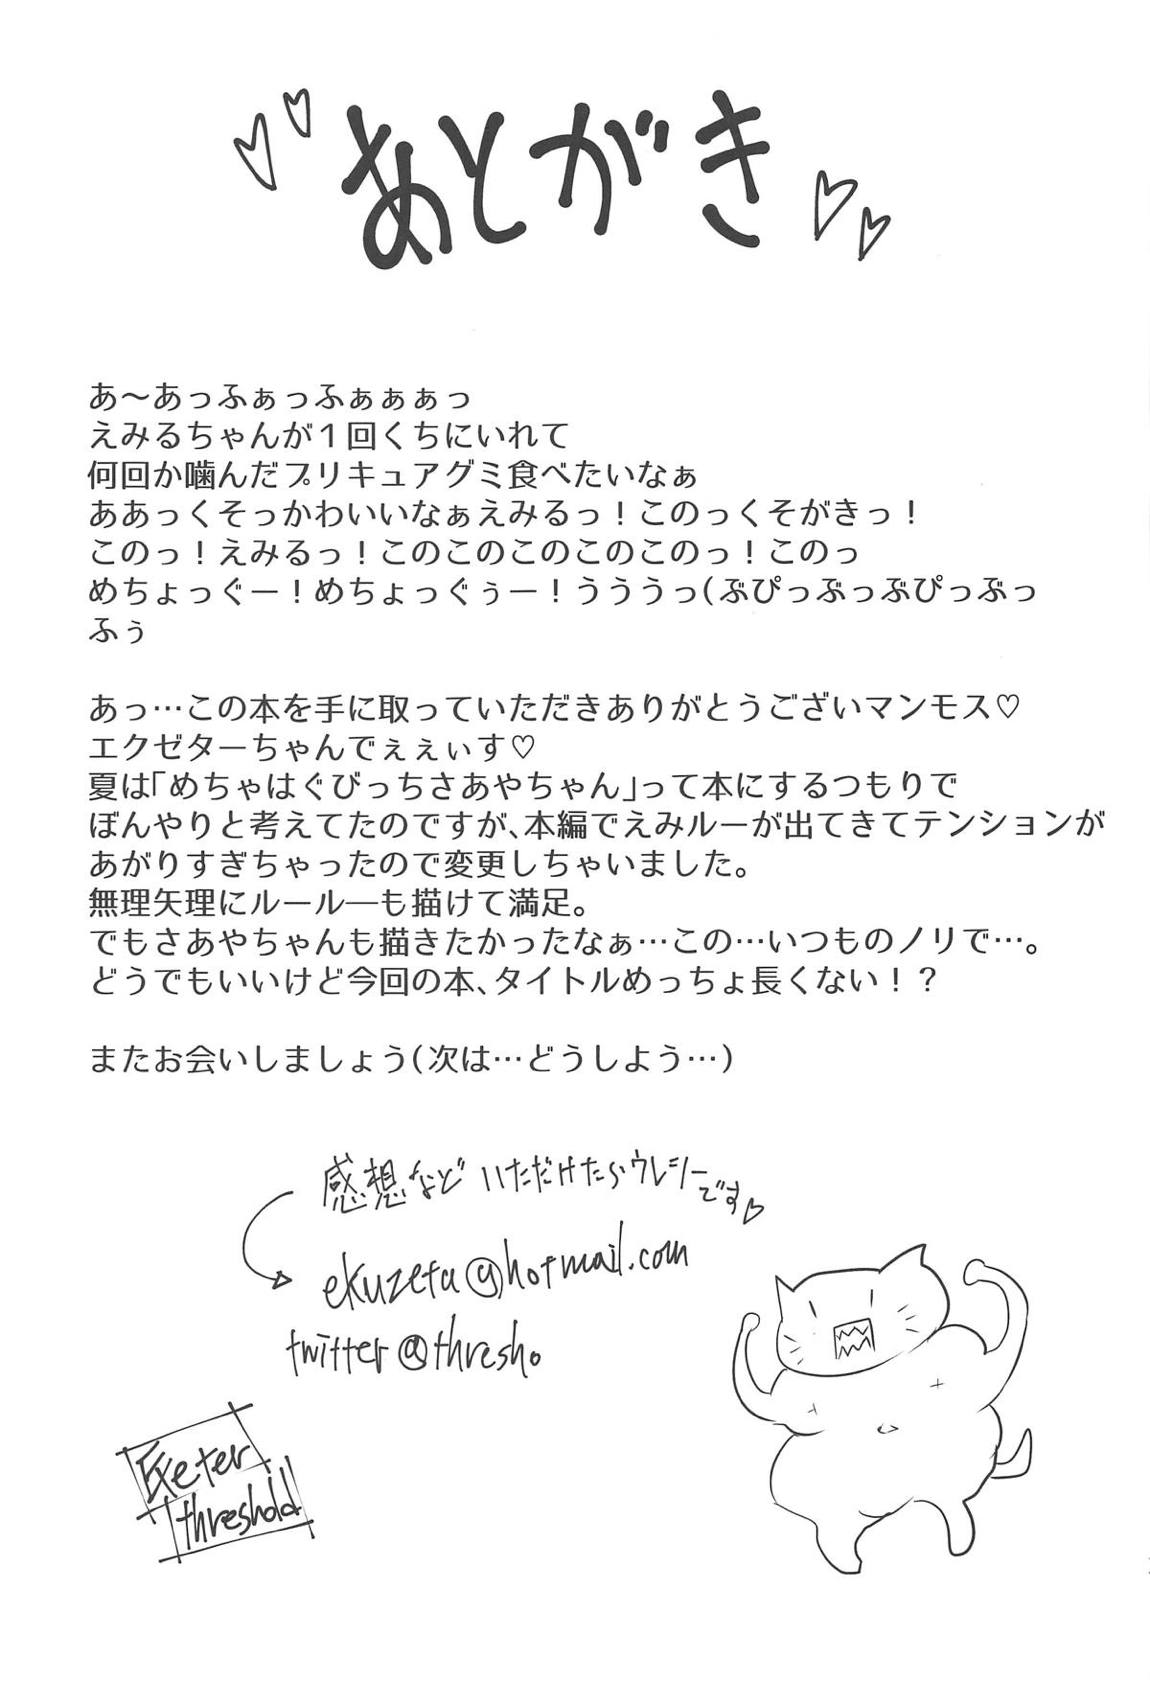 あとがき
あ〜あっふぁっふぁぁぁっ
えみるちゃんが１回くちにいれて
何回か噛んだプリキュアグミ食べたいなぁ
ああっくそっかわいいなぁえみるっ！このっくそがきっ！
このっ！えみるっ！このこのこのこのこのっ！このっ
めちょっぐー！めちょっぐぅー！うううっ(ぶぴっぶっぶぴっぶっ
ふぅ
あっ…この本を手に取っていただきありがとうございマンモス♡
エクゼターちゃんでぇぇぃす♡
夏は｢めちゃはぐびっちさあやちゃん｣って本にするつもりで
ぼんやりと考えてたのですが､本編でえみルーが出てきてテンションが
あがりすぎちゃったので変更しちゃいました。
無理矢理にルール―も描けて満足。
でもさあやちゃんも描きたかったなぁ…この…いつものノリで…。
どうでもいいけど今回の本､タイトルめっちょ長くない！？
またお会いしましょう(次は…どうしよう…)
感想など いただけたらウレシーです♡
ekuzeta@hotmail.com
twitter@thresho
Exeter
threshold